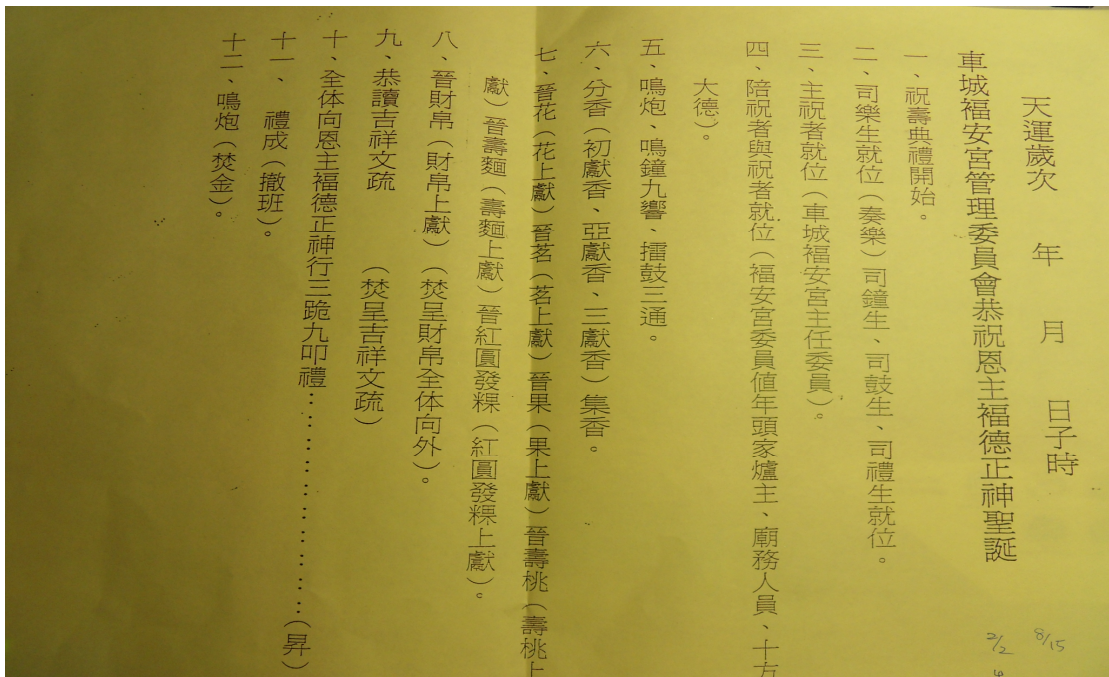 天運歲次　年　月　日子時
車城福安宮管理委員會恭祝恩主福德正神聖誕
一、祝壽典禮開始。
二、司樂生就位（奏樂）司鐘生、司鼓生、司禮生就位。
三、主祝者就位（車城福安宮主任委員）。
四、陪祝者與祝者就位（福安宮委員值年頭家爐主、廟務人員、十方
大德）。
五、鳴炮、鳴鐘九響、擂鼓三通。
六、分香（初獻香、亞獻香、三獻香）集香。
七、晉花（花上獻）晉茗（茗上獻）晉果（果上獻）晉壽桃（壽桃上
獻）晉壽麵（壽麵上獻）晉紅圓發粿（紅圓發粿上獻）。
八、晉財帛（財帛上獻）（焚呈財帛全体向外）。
九、恭讀吉祥文疏　（焚呈吉祥文疏）
十、全体向恩主福德正神行三跪九叩禮……………………（昇）
十一、禮成（撤班）。
十二、鳴炮（焚金）。
8/15
2/2